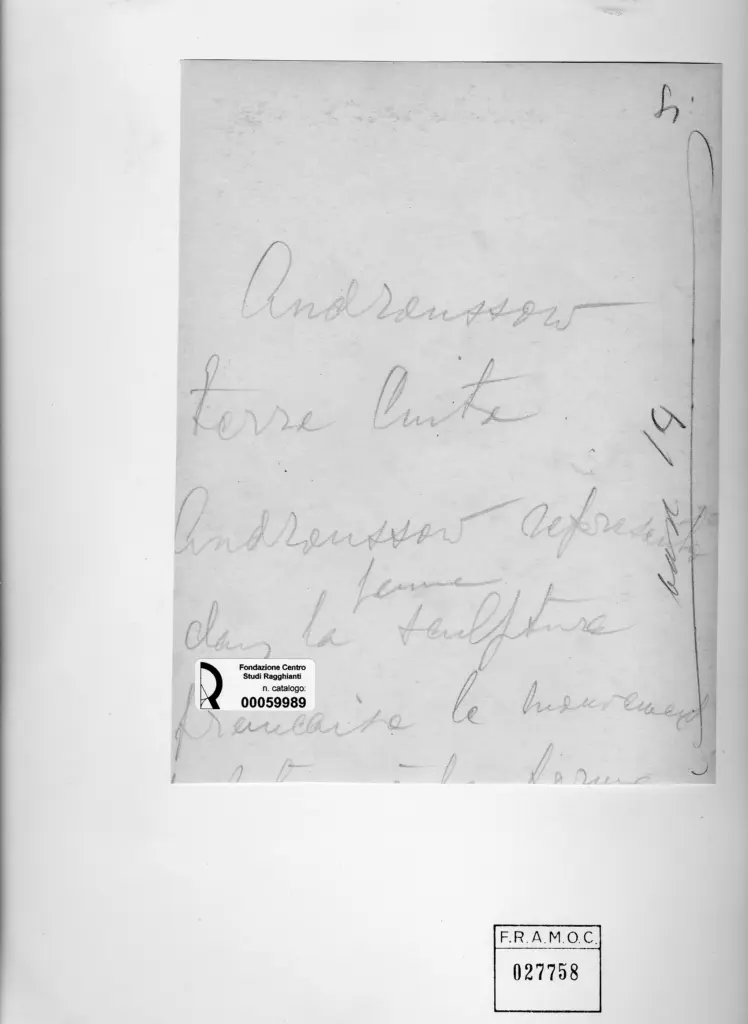 Si
Androussow
terre Cuite
Androussow représente
dans la jeune sculpture
française le mouvement
Fondazione Centro
Studi Ragghianti
n. catalogo:
00059989
19
F.R.A.M.O.C.
027758